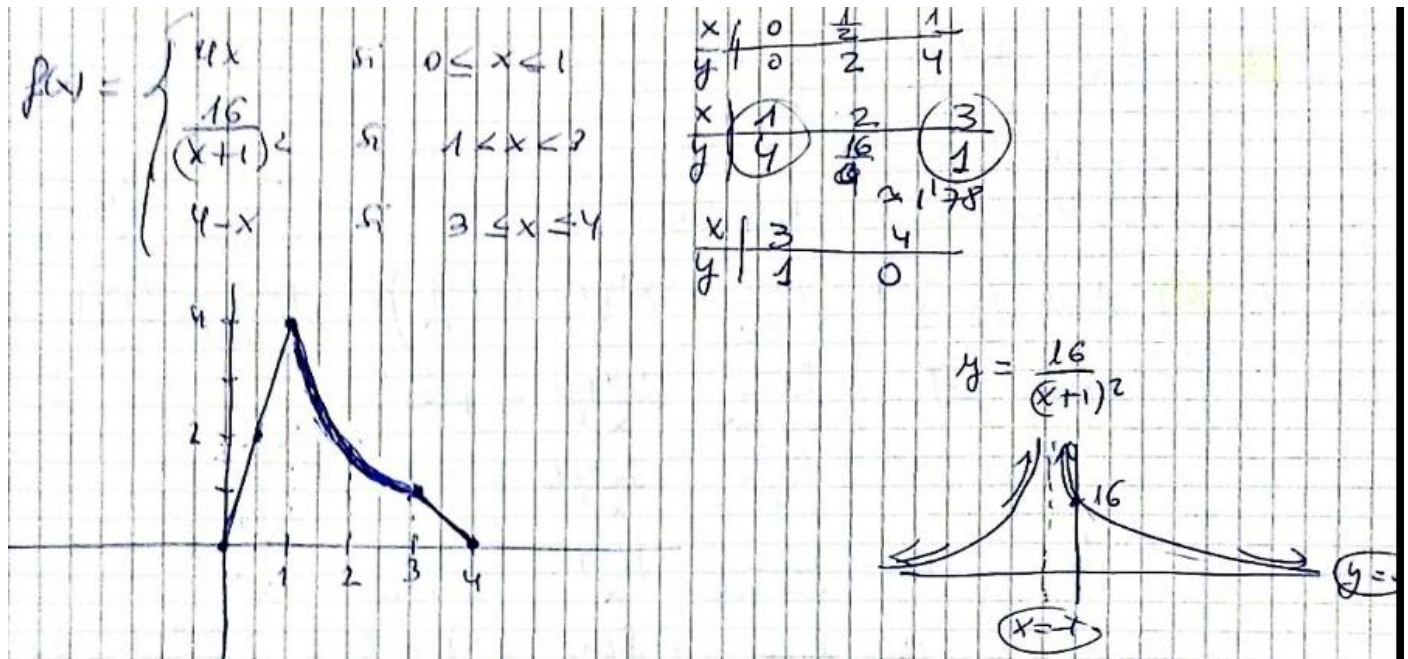 f(x) =
4x si 0 ≤ x ≤ 1
16/(x+1)² si 1 < x < 3
4-x si 3 ≤ x ≤ 4
x | 0 1/2 1
y | 0 2 4
x | 1 2 3
y | 4 16/9 1
≈ 1'78
x | 3 4
y | 1 0
4
2
1 2 3 4
y = 16/(x+1)²
16
y =
x = -1